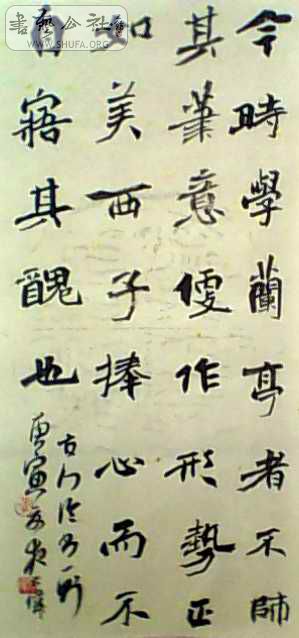 今時學蘭亭者不師
其筆意便作形勢正
如美西子捧心而不
自寤其醜也
庚寅
書艺公社
WWW.SHUFA.ORG